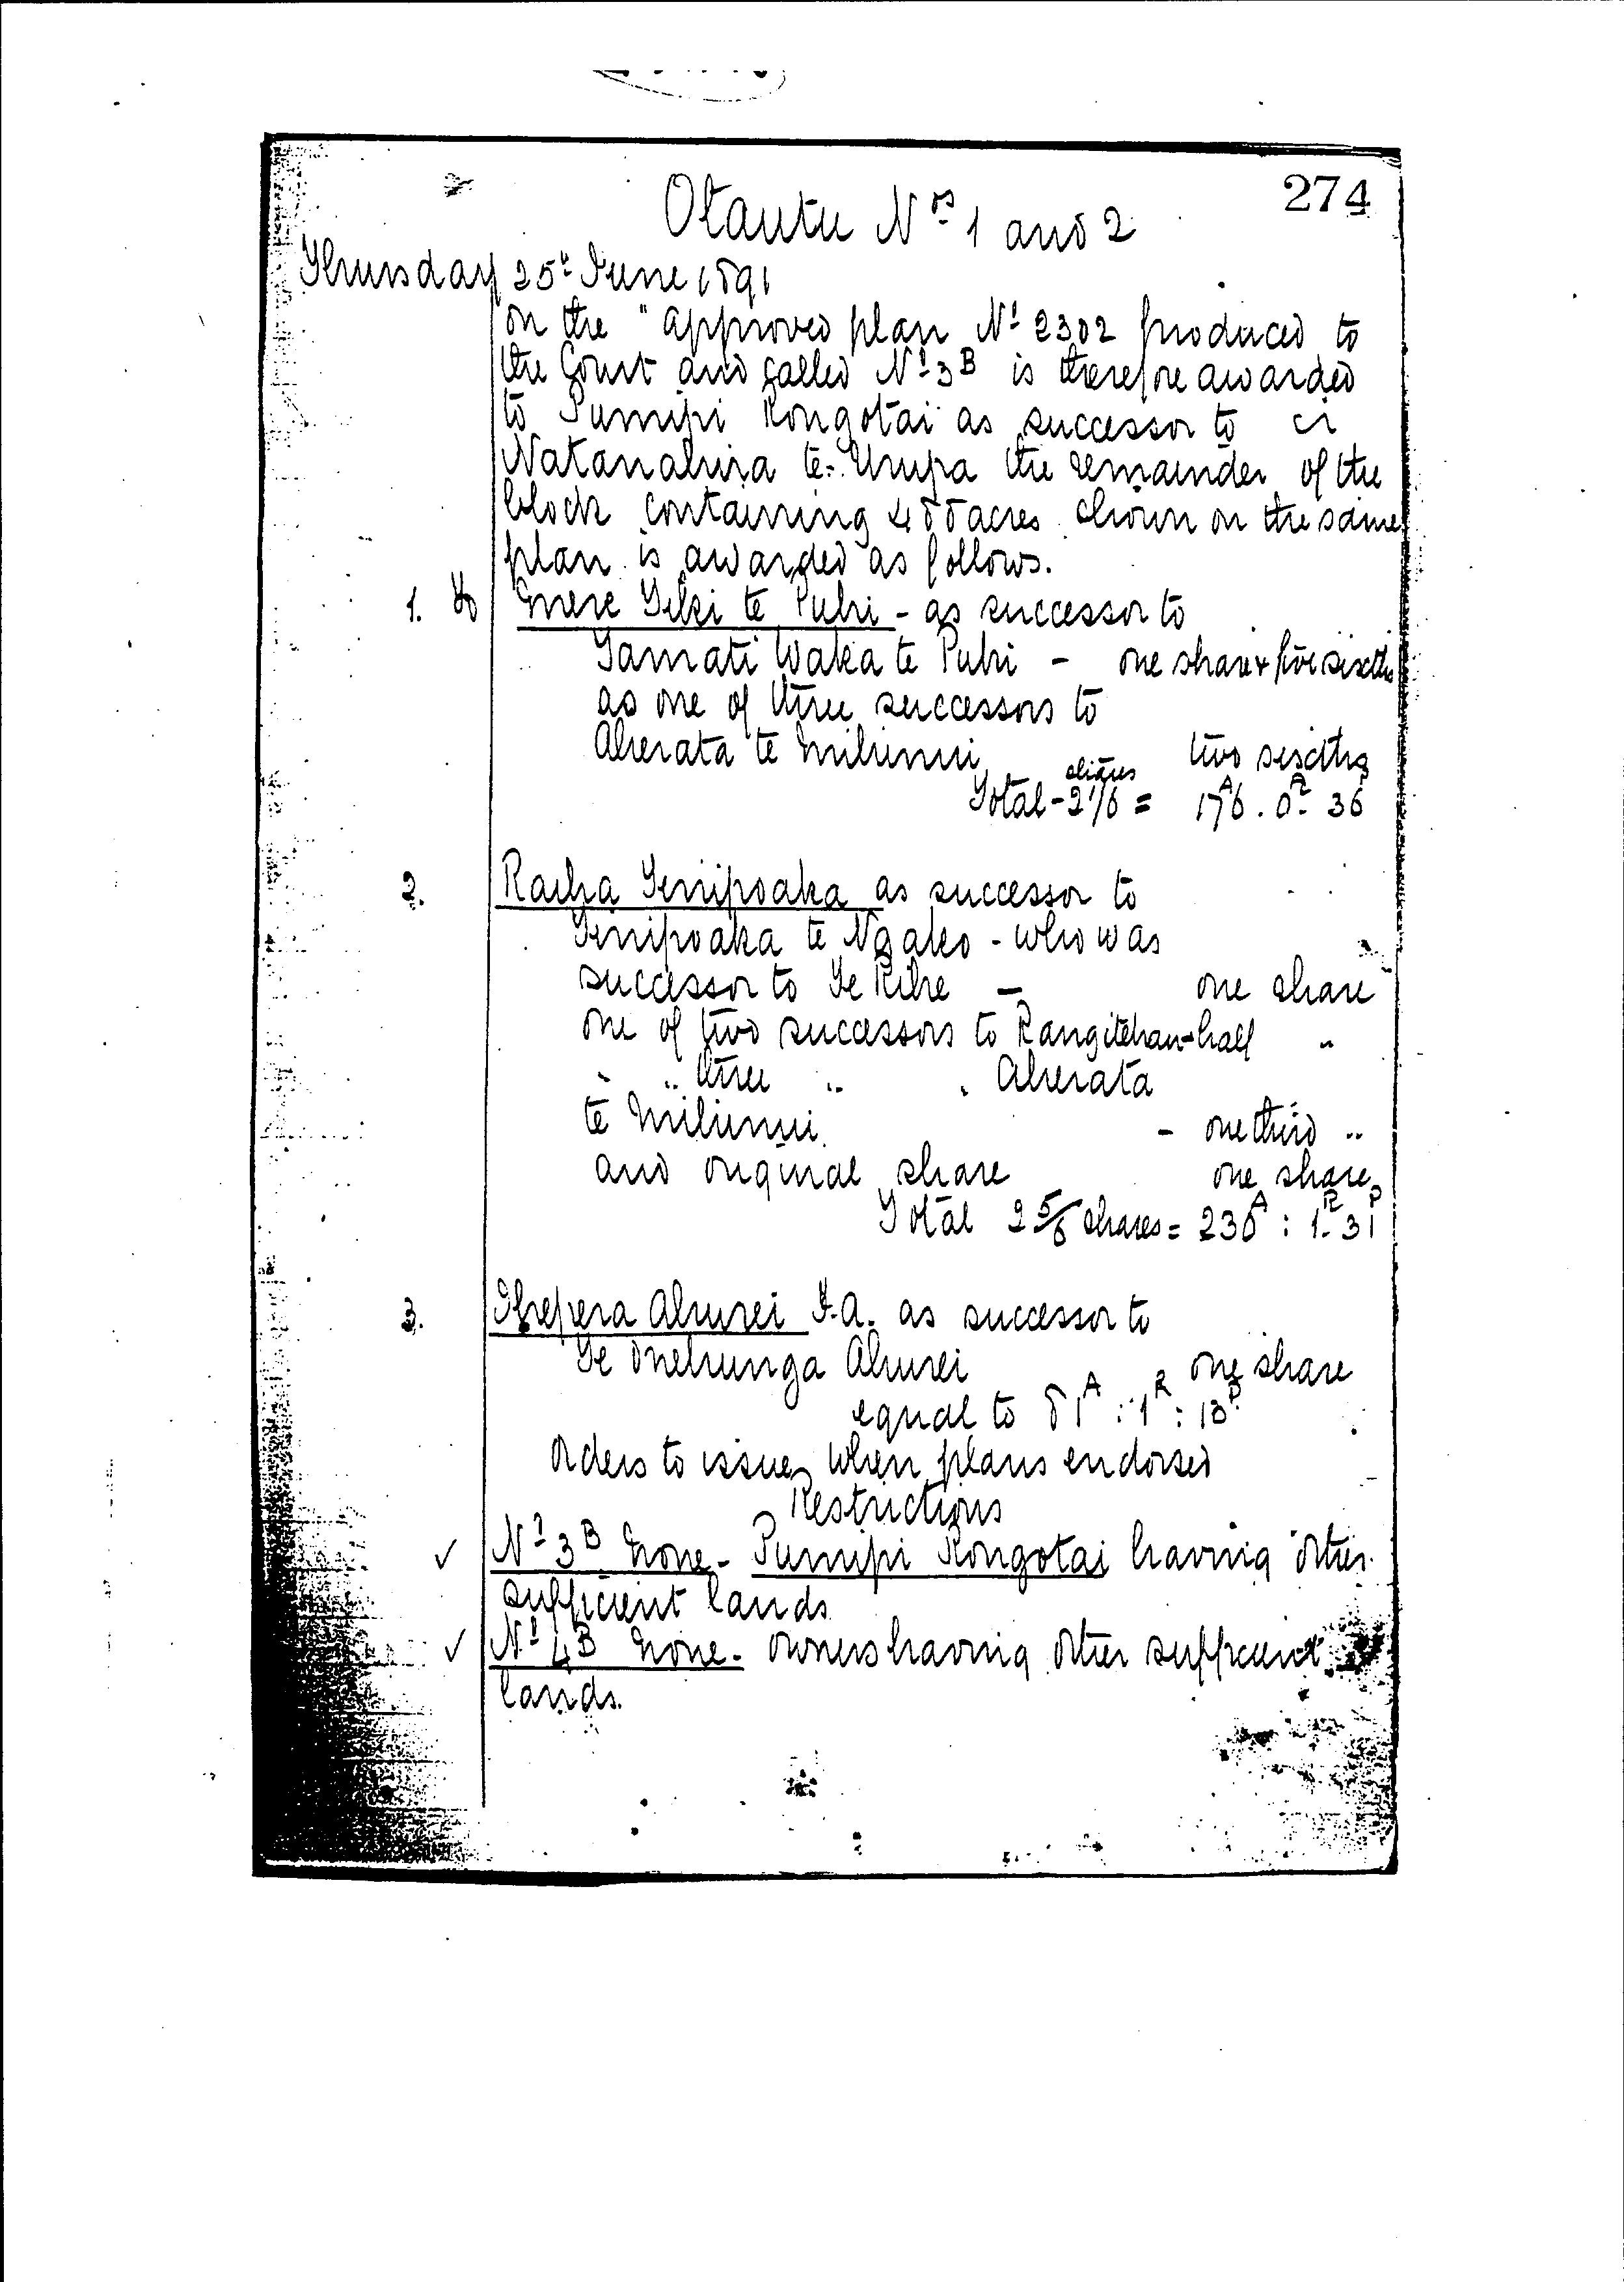 274
Otautu Nos 1 and 2
Thursday 25th June 1891
on the "approved plan No 2302 produced to
the Court and called No 3B is therefore awarded
to Pumipi Kongotai as successor to
Natanahira te Urupa the remainder of the
block containing 488 acres shown on the same
plan is awarded as follows.
1. To Mere Tiki te Puhi - as successor to
Tamati Waka te Puhi - one share & five sixths
as one of three successors to
Aherata te Mihinui two sixths
Total - 2 1/6 shares = 176A. 0R. 36P
2. Raiha Tenipoaka as successor to
Tenipoaka te Ngako - who was
successor to Te Kihe - one share
one of two successors to Rangitehau - half "
" " three " " Aherata
te Mihinui - one third "
and original share one share
Total 2 5/6 shares = 230A : 1R. 31P
3. Thepera Ahurei F.A. as successor to
Te Onehunga Ahurei one share
equal to 81A : 1R : 13P
Orders to issue when plans endorsed
Restrictions
✓ No 3B None - Pumipi Kongotai having other
sufficient lands
✓ No 4B None - owners having other sufficient
lands.